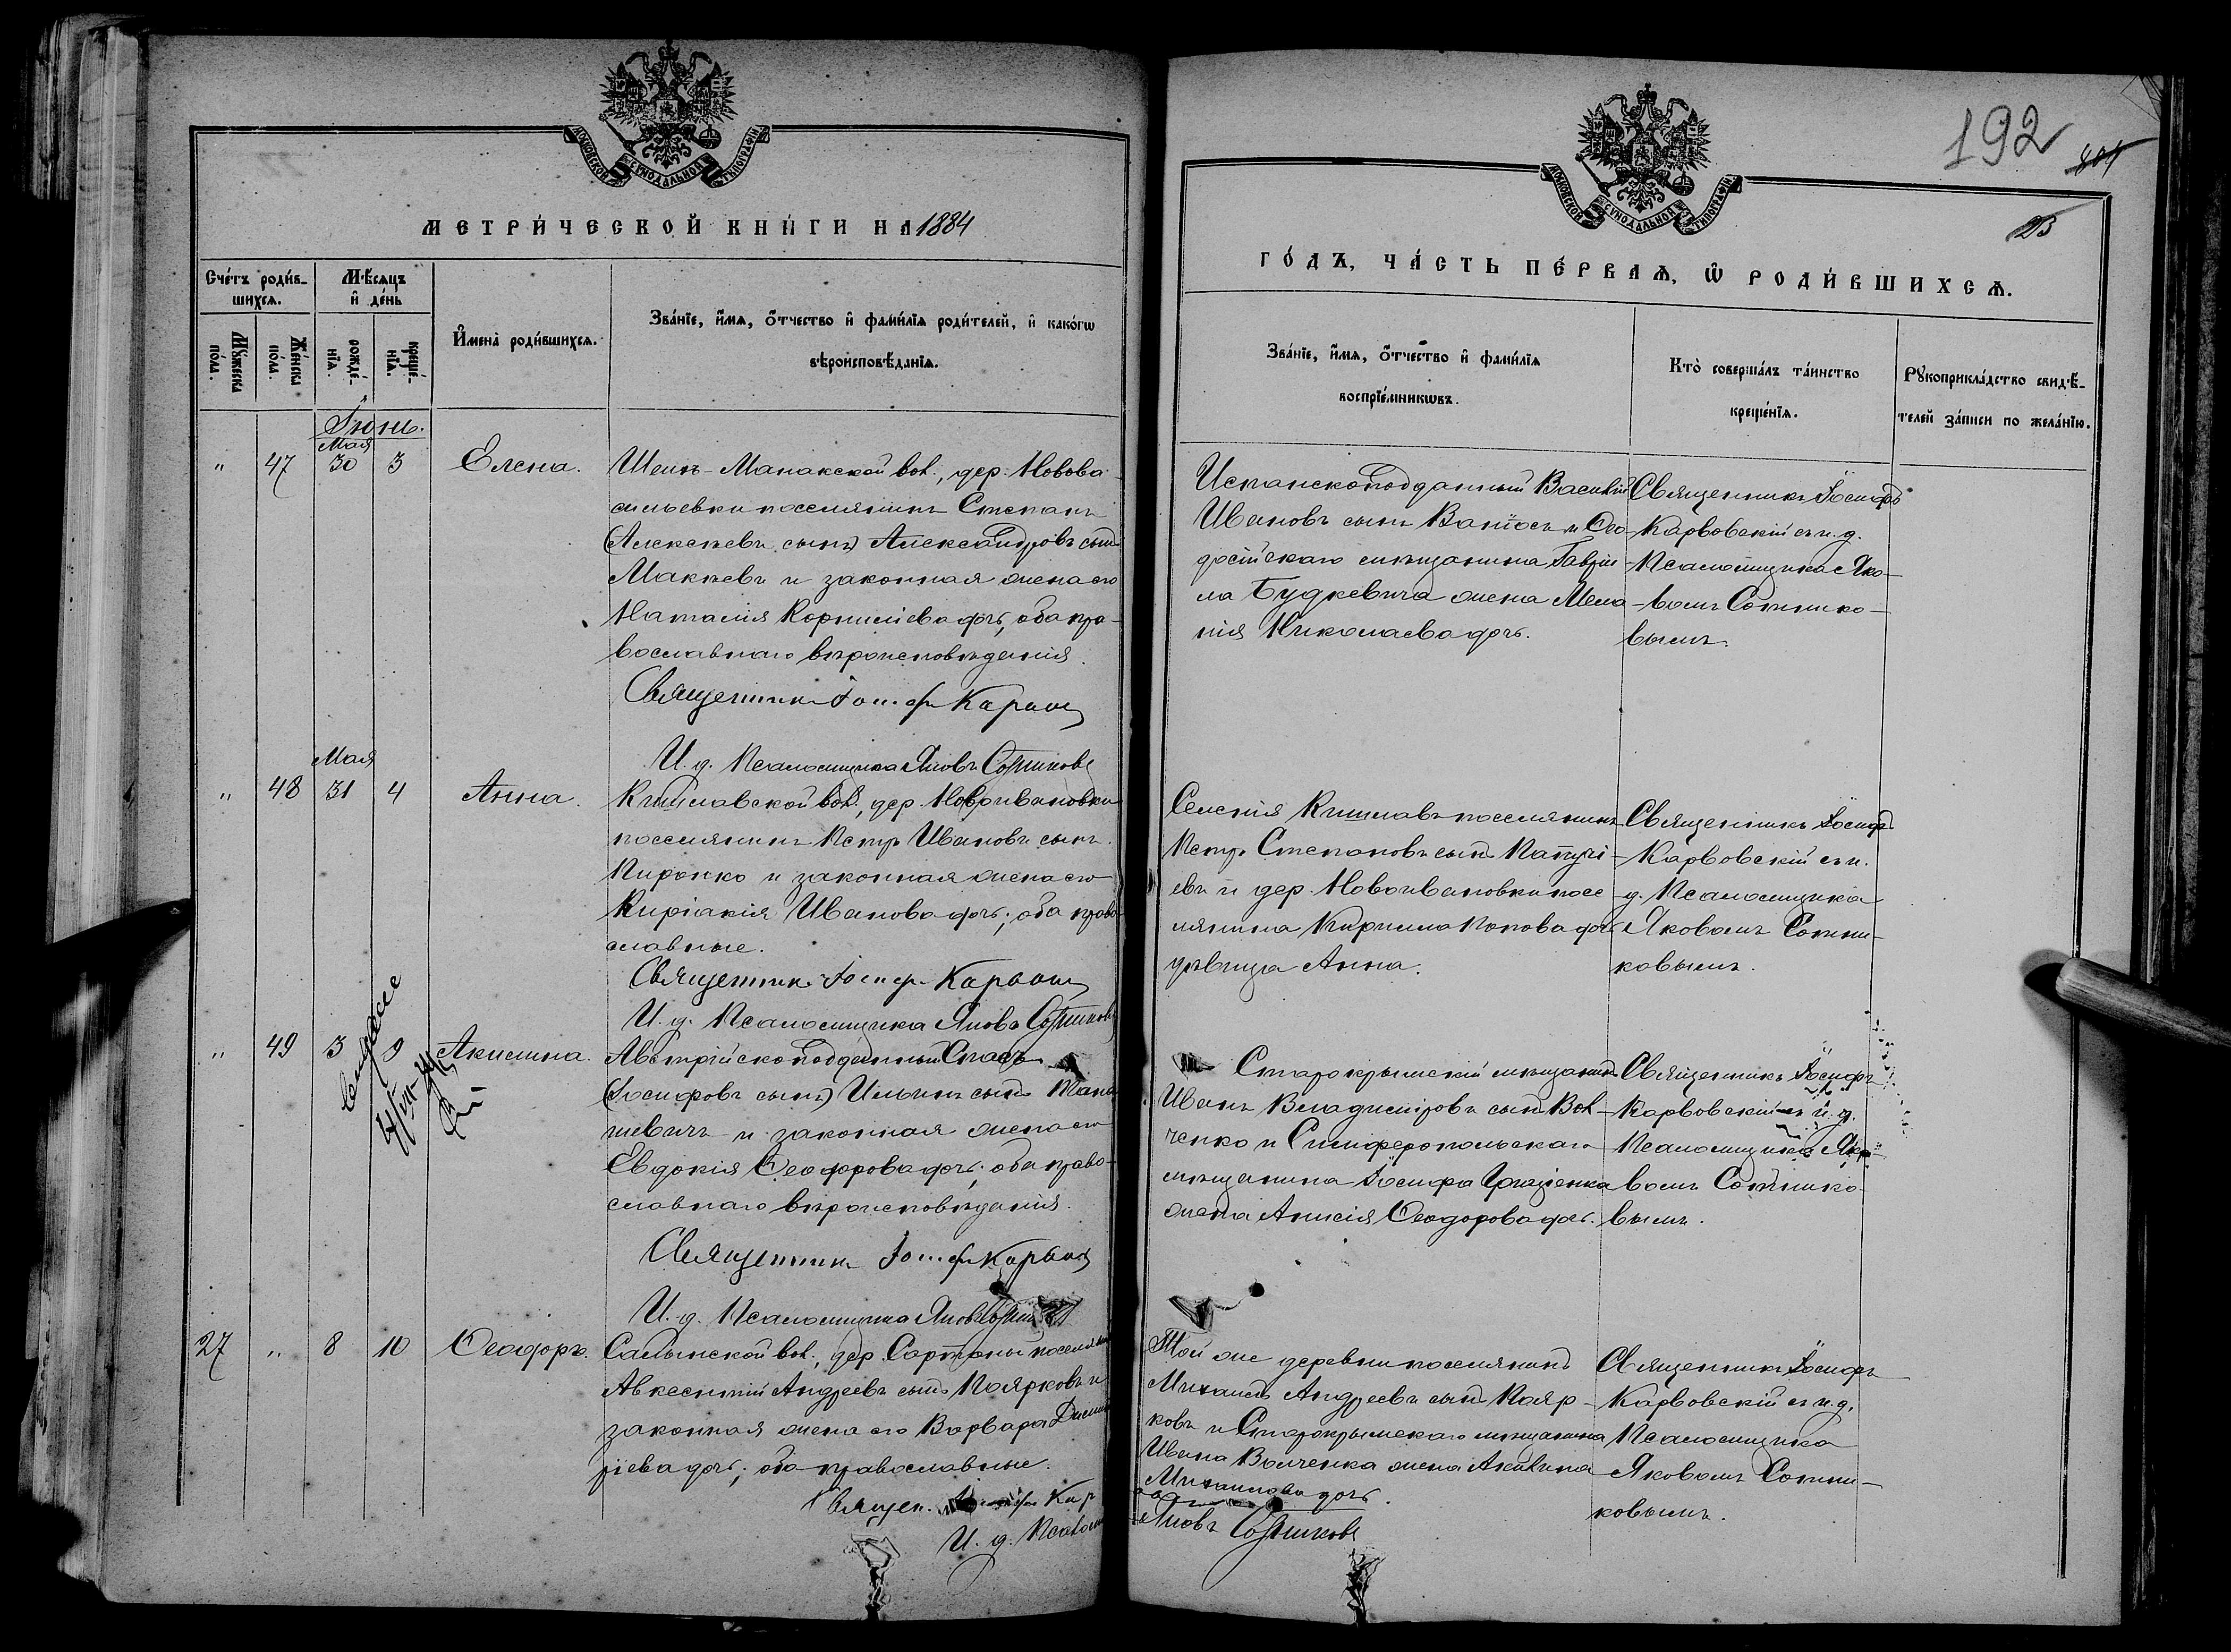 МОСКОВСКОЙ СѴНОДАЛЬНОЙ ТИПОГРАФІИ
МЕТРИ́ЧЕСКОЙ КНИ́ГИ НА 1884
Сче́тъ роди́в-
шихсѧ.
Мѣ́сѧцъ
и҆ де́нь
Мꙋ́жеска
по́ла.
Же́нска
по́ла.
рожде́-
нїѧ.
креще́-
нїѧ.
И҆мена̀ роди́вшихсѧ.
Зва́нїе, и҆́мѧ, ѻ҆́тчество и҆ фами́лїѧ роди́телей, и҆ како́гѡ
вѣроисповѣ́данїѧ.
Іюнь.
Мая
" 47 30 3 Елена.
Шеихъ-Манакской вол., дер. Новова-
сильевки поселянинъ Степанъ
(Алексѣевъ сынъ) Александровъ сынъ
Макѣевъ и законная жена его
Наталія Корнилiева дочь, оба пра-
вославнаго вѣроисповѣданія.
Священникъ Іосифъ
И. д. Псаломщика Яковъ Сотниковъ
Мая
" 48 31 4 Анна.
Кишлавской вол., дер. Новоивановки
поселянинъ Петръ Ивановъ сынъ
Пиронко и законная жена его
Киріакія Иванова дочь, оба право-
славные.
Священникъ Іосифъ
И. д. Псаломщика Яковъ Сотниковъ
" 49 3 9 Акилина.
Австрійскоподданный Спасъ
(Іосифовъ сынъ) Ильинъ сынъ
и законная жена его
Евдокія Ѳеодорова дочь, оба право-
славнаго вѣроисповѣданія.
Священникъ Іосифъ
И. д. Псаломщика Яковъ Сотниковъ
27 " 8 10 Ѳеодоръ.
Салынской вол., дер. Сартаны поселянинъ
Авксентій Андреевъ сынъ Поярковъ и
законная жена его Варвара Дими-
ріева дочь, оба православные.
Священ. Кар
И. д. Псалом
192
23
МОСКОВСКОЙ СѴНОДАЛЬНОЙ ТИПОГРАФІИ
ГО́ДЪ, ЧА́СТЬ ПЕ́РВАѦ, Ѡ҆ РОДИ́ВШИХСѦ.
Зва́нїе, и҆́мѧ, ѻ҆́тчество и҆ фами́лїѧ
воспрїе́мникѡвъ.
Кто̀ соверша́лъ та́инство
креще́нїѧ.
Рꙋкоприкла́дство свидѣ́-
телей за́писи по жела́нїю.
Испанскоподданный Василій
Ивановъ сынъ и Ѳео-
досійскаго мѣщанина Гаврі-
ла Будкевича жена Мела-
нія Николаева дочь.
Священникъ Іосифъ
Карвовскій съ и. д.
Псаломщика Яко-
вомъ Сотнико-
вымъ.
Селенія Кишлавъ поселянинъ
Петръ Степановъ сынъ
евъ и дер. Новоивановки посе-
лянина Кирилла Попова дочь
дѣвица Анна.
Священникъ Іосифъ
Карвовскій съ и.
д. Псаломщика
Яковомъ Сотни-
ковымъ.
Старокрымскій мѣщанинъ
Иванъ Владиміровъ сынъ Вол-
ченко и Симферопольскаго
мѣщанина Іосифа
жена Анисія Ѳеодорова дочь.
Священникъ Іосифъ
Карвовскій съ и. д.
Псаломщика Яко-
вомъ Сотнико-
вымъ.
Той же деревни поселянинъ
Михаилъ Андреевъ сынъ Пояр-
ковъ и Старокрымскаго мѣщанина
Ивана Волченка жена Акилина
Михаилова дочь.
Яковъ Сотниковъ
Священникъ Іосифъ
Карвовскій съ и. д.
Псаломщика
Яковомъ Сотни-
ковымъ.